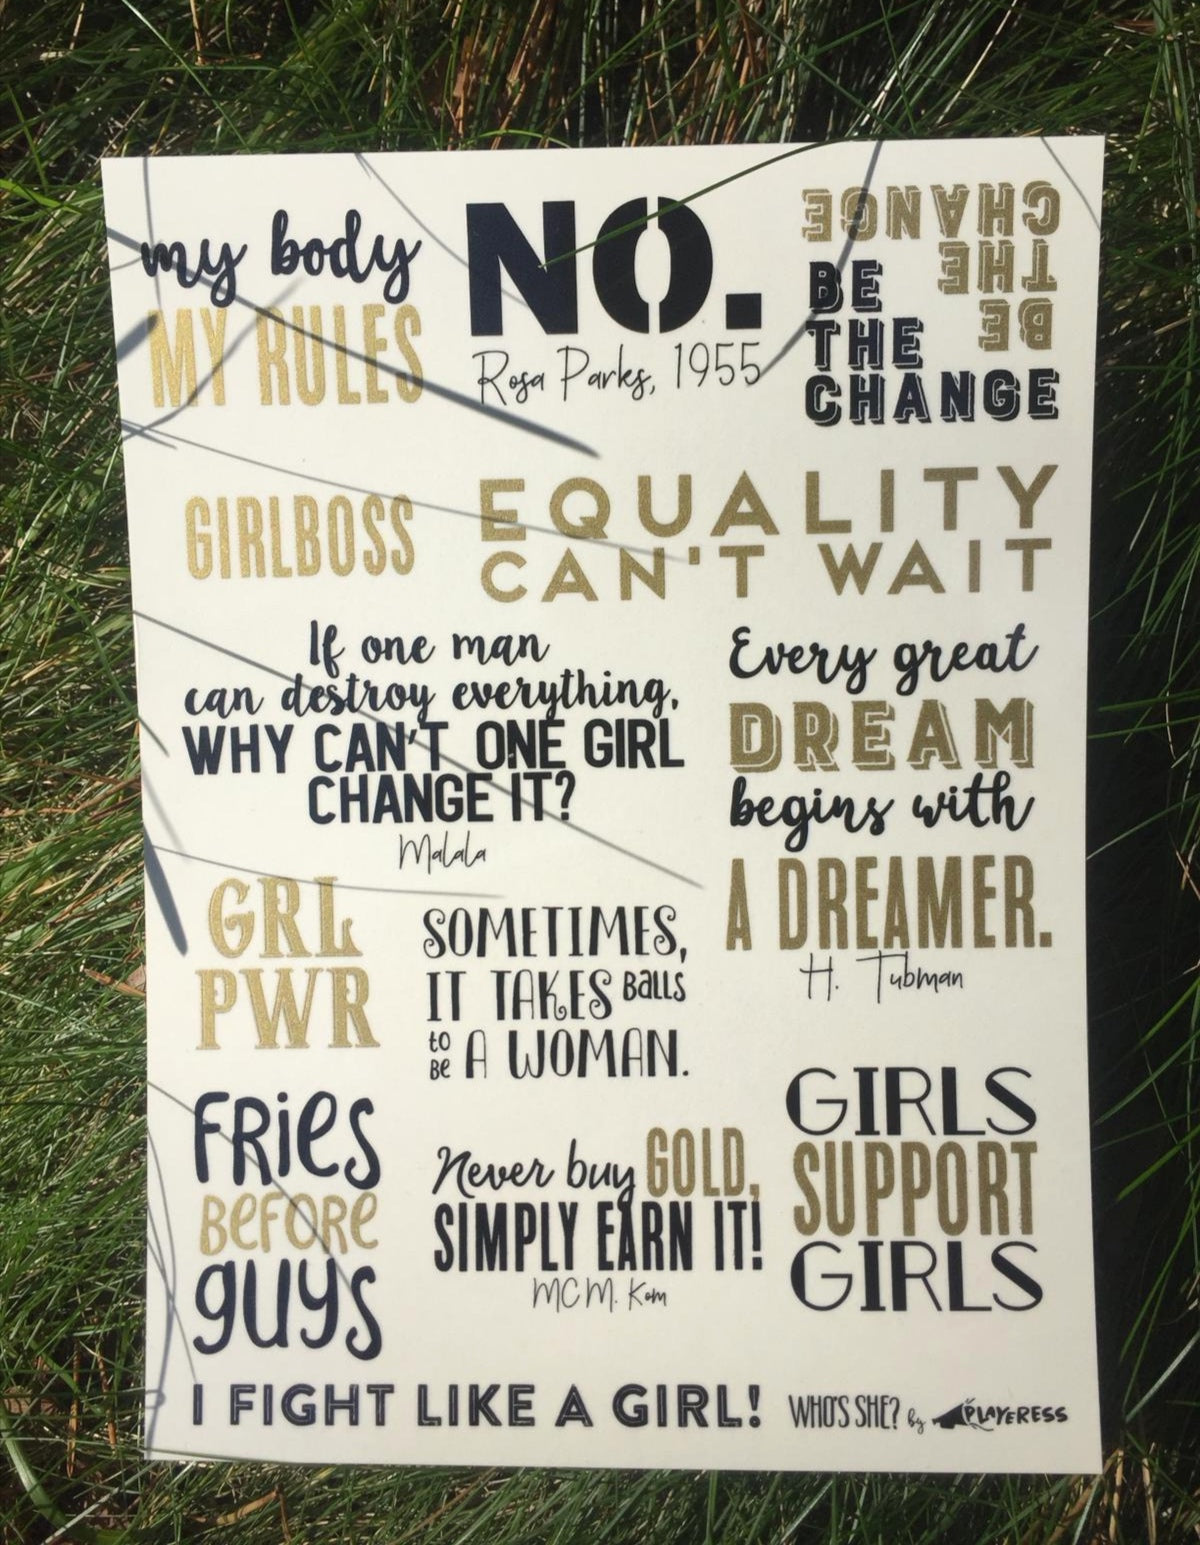 my body
MY RULES
NO.
Rosa Parks, 1955
BE
THE
CHANGE
BE
THE
CHANGE
GIRLBOSS
EQUALITY
CAN'T WAIT
If one man
can destroy everything,
WHY CAN'T ONE GIRL
CHANGE IT?
Malala
Every great
DREAM
begins with
A DREAMER.
H. Tubman
GRL
PWR
SOMETIMES,
IT TAKES BALLS
to BE A WOMAN.
FRIES
BEFORE
GUYS
Never buy GOLD,
SIMPLY EARN IT!
MC M. Kom
GIRLS
SUPPORT
GIRLS
I FIGHT LIKE A GIRL!
WHO'S SHE? by PLAYERESS